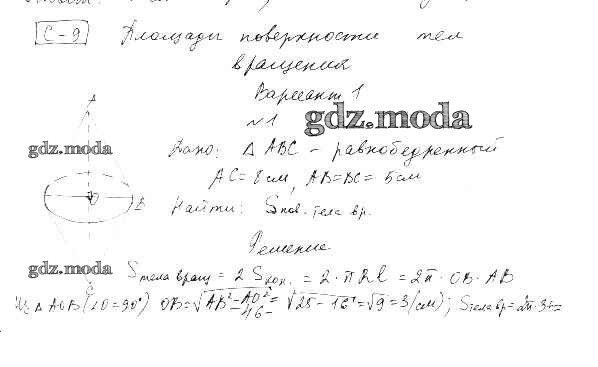 С-9 Площади поверхности тел
вращения
Вариант 1
№1
gdz.moda
gdz.moda
Дано: Δ ABC - равнобедренный
AC = 8 см, AB=BC = 5 см
A
O
B
Найти: Sпов. тела вр.
Решение
gdz.moda
Sтела вращ = 2 Sбок. = 2·πRl = 2π · OB · AB
C
Из Δ AOB (∠O=90°) OB=√AB²-AO² = √25-16 = √9 = 3 (см); Sтела вр = 2π·3·5=